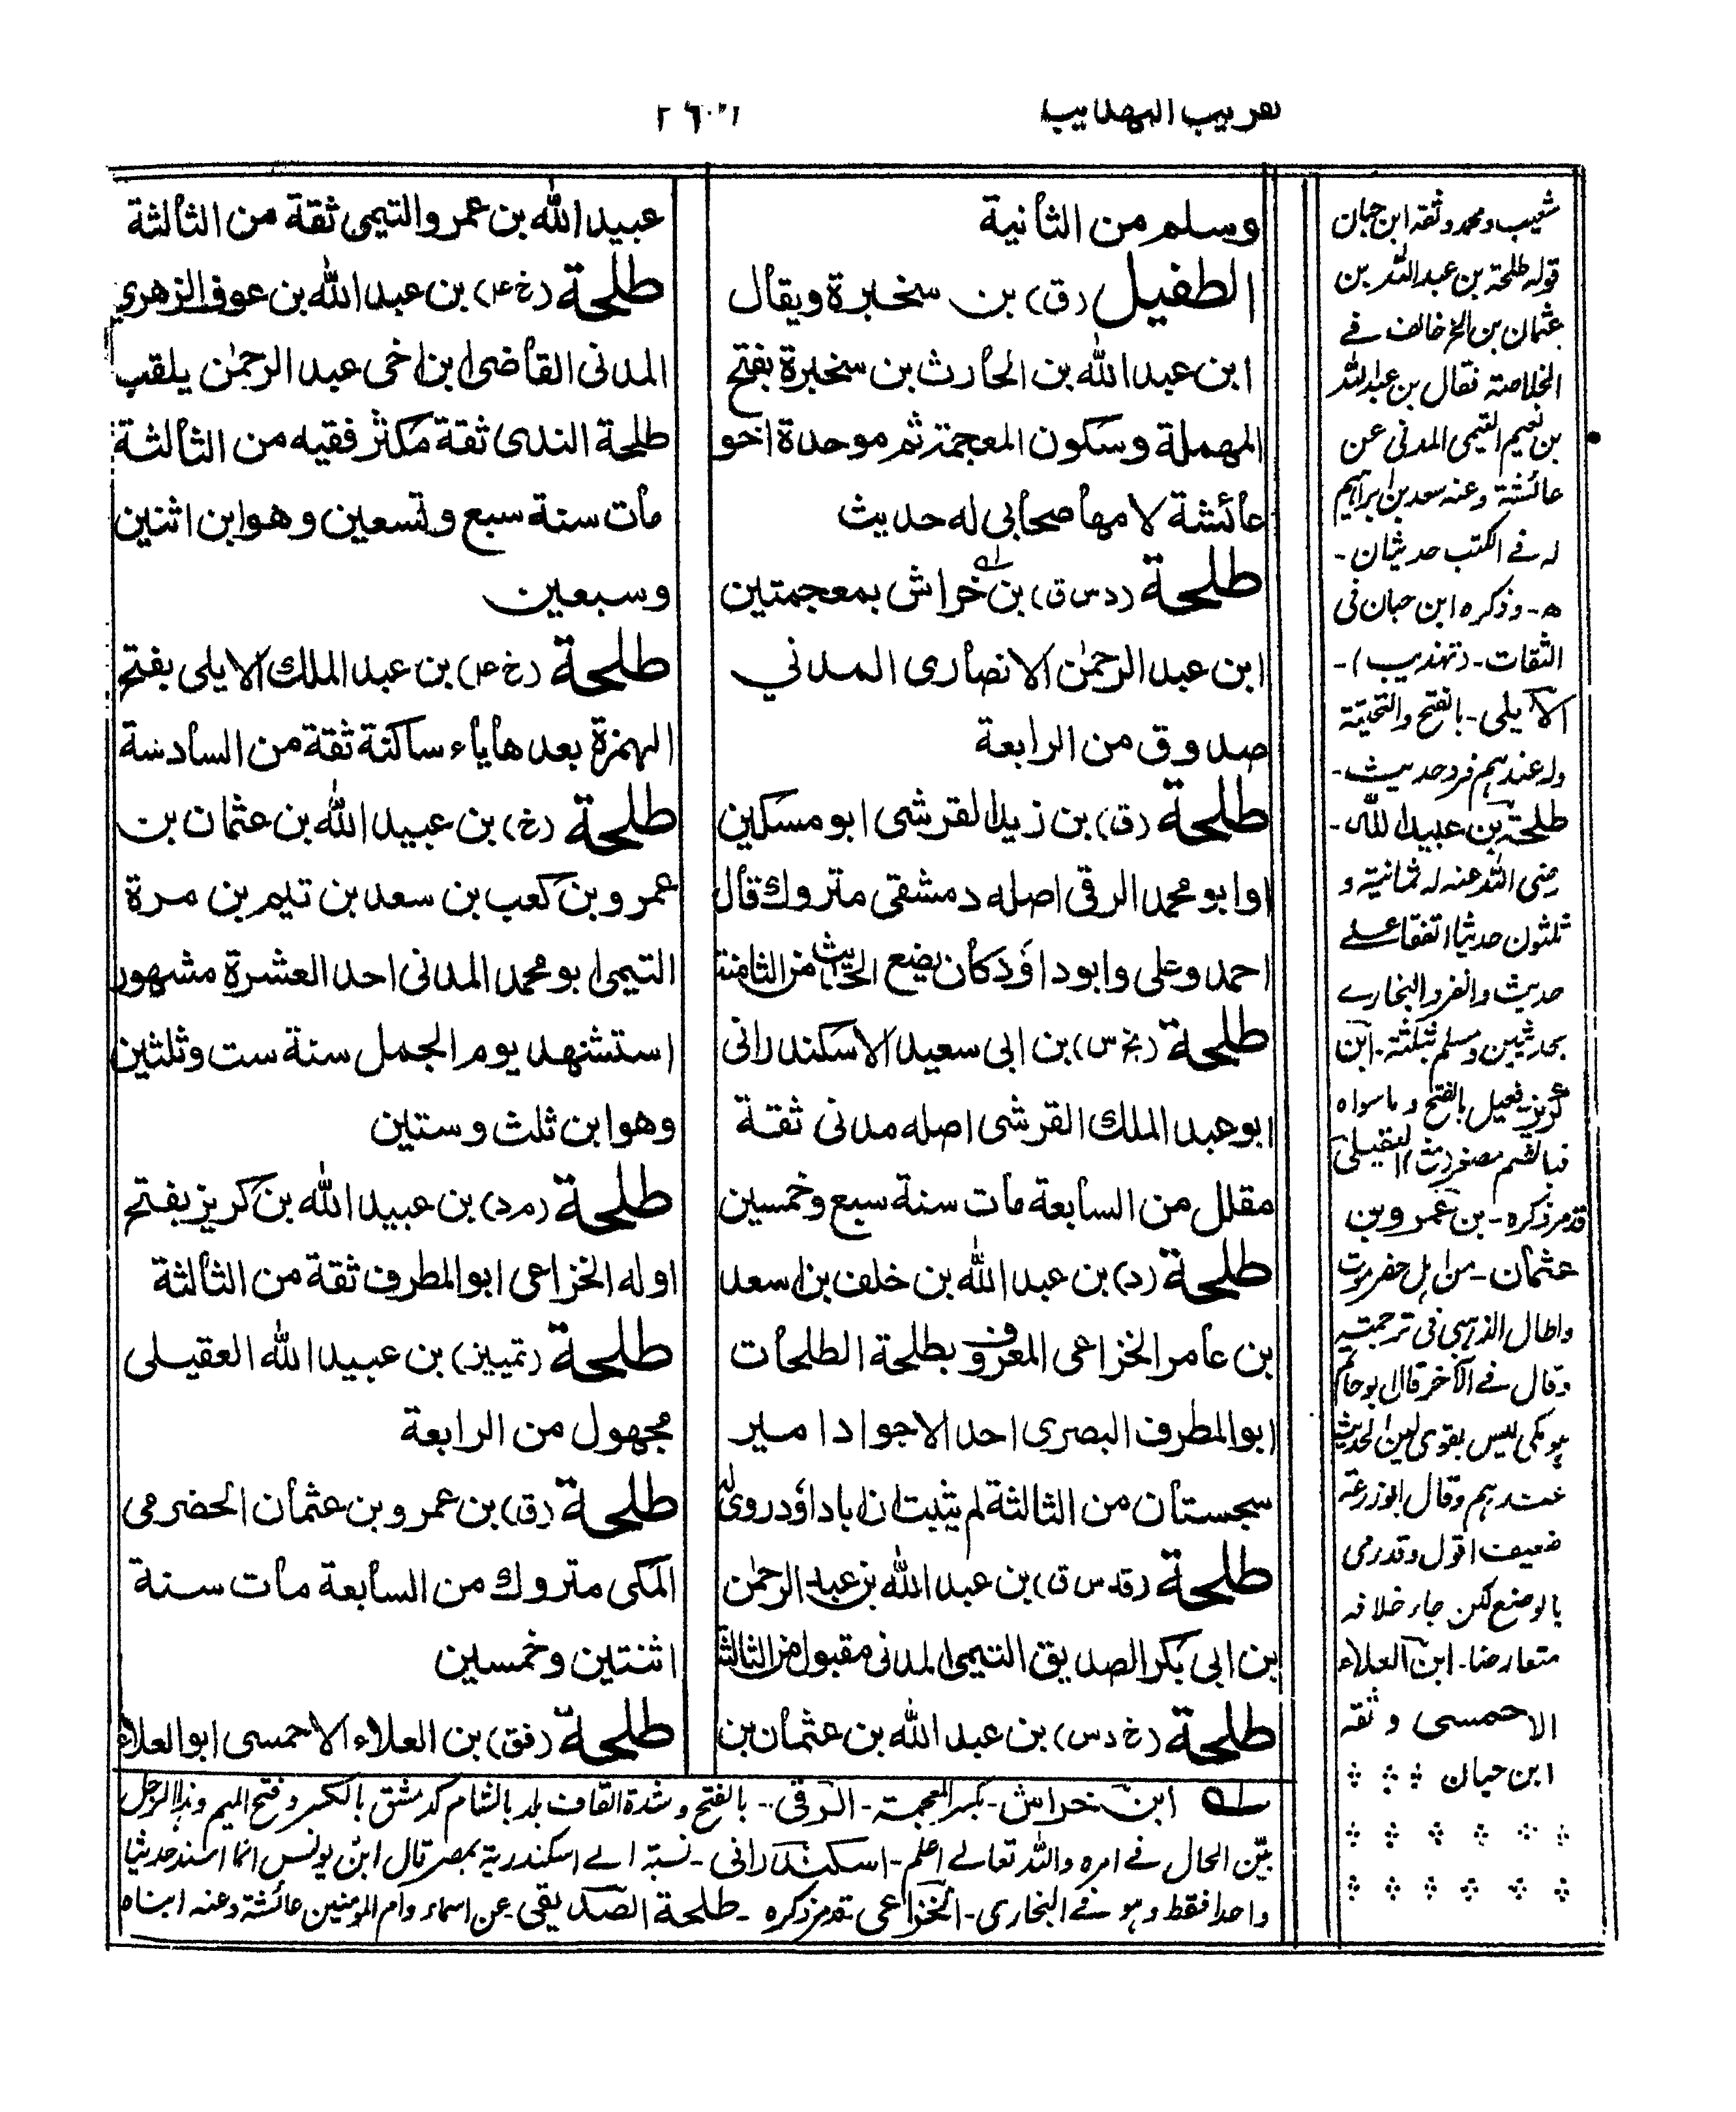 تقريب التهذيب
وسلم من الثانية
الطفيل (ق) بن سخبرة ويقال
ابن عبد الله بن الحارث بن سخبرة بفتح
المهملة وسكون المعجمة ثم موحدة اخو
عائشة لامها صحابي له حديث
طلحة (د س ق) بن خراش بمعجمتين
ابن عبد الرحمٰن الانصاری المدني
صدوق من الرابعة
طلحة (ق) بن زيد القرشی ابو مسكين
او ابو محمد الرقی اصله دمشقی متروك قال
احمد وعلی وابو داؤد كان يضع الحديث من الثامنة
طلحة (بخ س) بن ابی سعيد الاسكندرانی
ابو عبد الملك القرشی اصله مدنی ثقة
مقلل من السابعة مات سنة سبع وخمسين
طلحة (د) بن عبد الله بن خلف بن اسعد
بن عامر الخزاعی المعروف بطلحة الطلحات
ابو المطرف البصری احد الاجواد امير
سجستان من الثالثة لم يثبت ان ابا داؤد روی له
طلحة (قد س ق) بن عبد الله بن عبد الرحمٰن
بن ابی بكر الصديق التيمی المدنی مقبول من الثالثة
طلحة (خ د س) بن عبد الله بن عثمان بن
عبيد الله بن عمرو التيمی ثقة من الثالثة
طلحة (خ عه) بن عبد الله بن عوف الزهري
المدنی القاضی ابن اخی عبد الرحمٰن يلقب
طلحة الندی ثقة مكثر فقيه من الثالثة
مات سنة سبع وتسعين وهو ابن اثنين
وسبعين
طلحة (خ عه) بن عبد الملك الايلی بفتح
الهمزة بعدها ياء ساكنة ثقة من السادسة
طلحة (ع) بن عبيد الله بن عثمان بن
عمرو بن كعب بن سعد بن تيم بن مرة
التيمی ابو محمد المدنی احد العشرة مشهور
استشهد يوم الجمل سنة ست وثلثين
وهو ابن ثلث وستين
طلحة (م د) بن عبيد الله بن كريز بفتح
اوله الخزاعی ابو المطرف ثقة من الثالثة
طلحة (تمييز) بن عبيد الله العقيلی
مجهول من الرابعة
طلحة (ق) بن عمرو بن عثمان الحضرمی
المكی متروك من السابعة مات سنة
اثنتين وخمسين
طلحة (فق) بن العلاء الاحمسی ابو العلاء
شعيب ومحمد وثقه ابن حبان
قوله طلحة بن عبد الله بن
عثمان بن الخ خالف فے
الخلاصة فقال بن عبد الله
بن نعيم التيمی المدنی عن
عائشة وعنه سعد بن ابراہيم
له فے الكتب حديثان -
ه - وذكره ابن حبان فی
الثقات - (تهذيب) -
الايلی - بالفتح والتحتية
وله عندہم فرد حديث -
طلحة بن عبيد الله -
رضی الله عنه له ثمانية و
ثلثون حديثا اتفقا علے
حديث وانفرد البخارے
بحديثين ومسلم بثلثة - ابن
كريز فعيل بالفتح وماسواه
فبالضم مصغر (مث) العقيلی
قد مر ذكره - بن عمرو بن
عثمان - من اہل حضرموت
واطال الذہبی فی ترجمته
وقال فے الآخر قال ابو حاتم
ہو مكی ليس بقوی لين الحديث
عندہم وقال ابو زرعة
ضعيف اقول وقد رمی
بالوضع لكن جاء خلافه
متعارضا - ابن العلاء
الاحمسی وثقه
ابن حبان
ابن خراش - بكسر المعجمة - الرقی - بالفتح وشدة القاف بلد بالشام كدمشق بالكسر وفتح الميم وہذا الرجل
بيّن الحال فے امره والله تعالے اعلم - اسكندرانی - نسبة الے اسكندرية بمصر قال ابن يونس انما اسند حديثا
واحدا فقط وہو فے البخاری - الخزاعی تقدم ذكره - طلحة الصديقی - عن اسماء وام المؤمنين عائشة وعنه ابناه